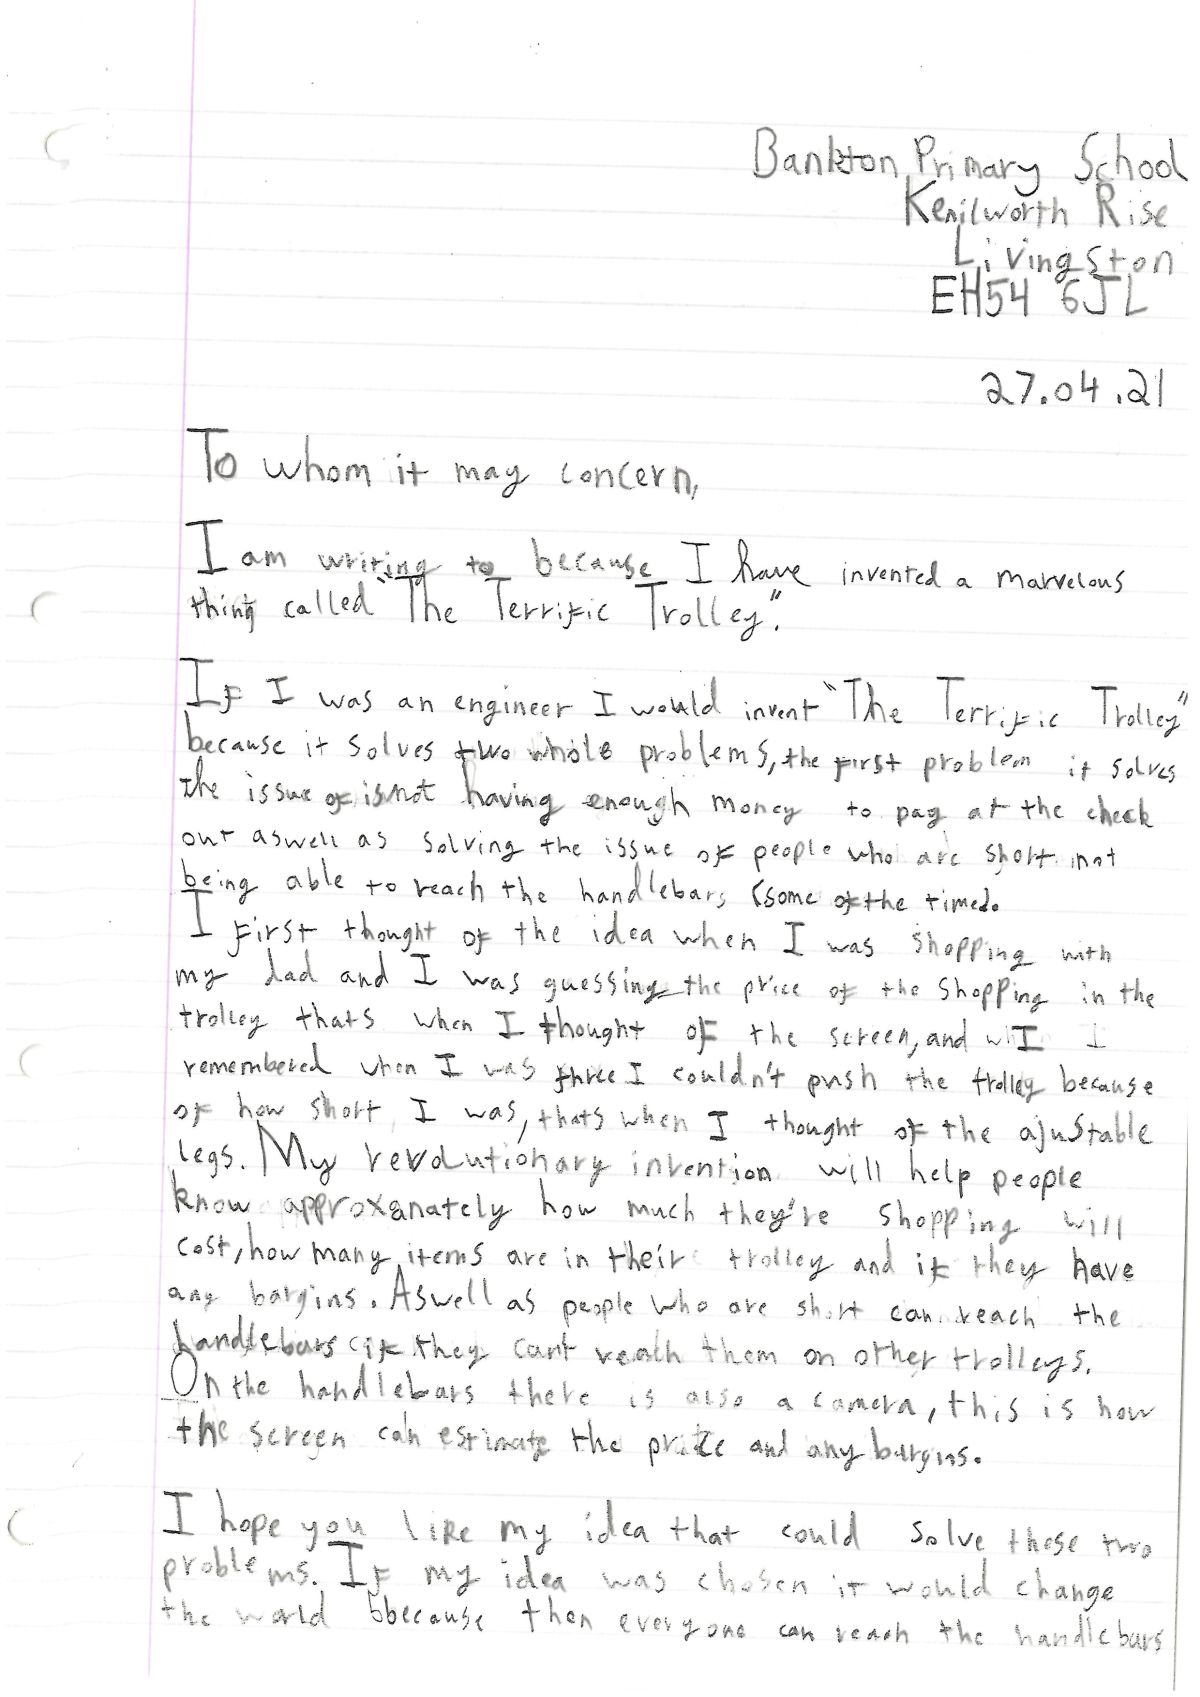 Bankton Primary School
Kenilworth Rise
Livingston
EH54 6JL
27.04.21
To whom it may concern,
I am writing to because I have invented a marvelous
thing called "The Terrific Trolley".
If I was an engineer I would invent "The Terrific Trolley"
because it solves two whole problems, the first problem it solves
the issue of is not having enough money to pay at the check
out aswell as solving the issue of people who are short not
being able to reach the handlebars (some of the time).
I first thought of the idea when I was shopping with
my dad and I was guessing the price of the shopping in the
trolley thats when I thought of the screen, and I
remembered when I was three I couldn't push the trolley because
of how short I was, thats when I thought of the ajustable
legs. My revolutionary invention will help people
know approxanately how much they're shopping will
cost, how many items are in their trolley and if they have
any bargins. Aswell as people who are short can reach the
handlebars (if they cant reach them on other trolleys.
On the handlebars there is also a camera, this is how
the screen can estimate the price and any bargins.
I hope you like my idea that could solve these two
problems. If my idea was chosen it would change
the world bbecause then everyone can reach the handlebars